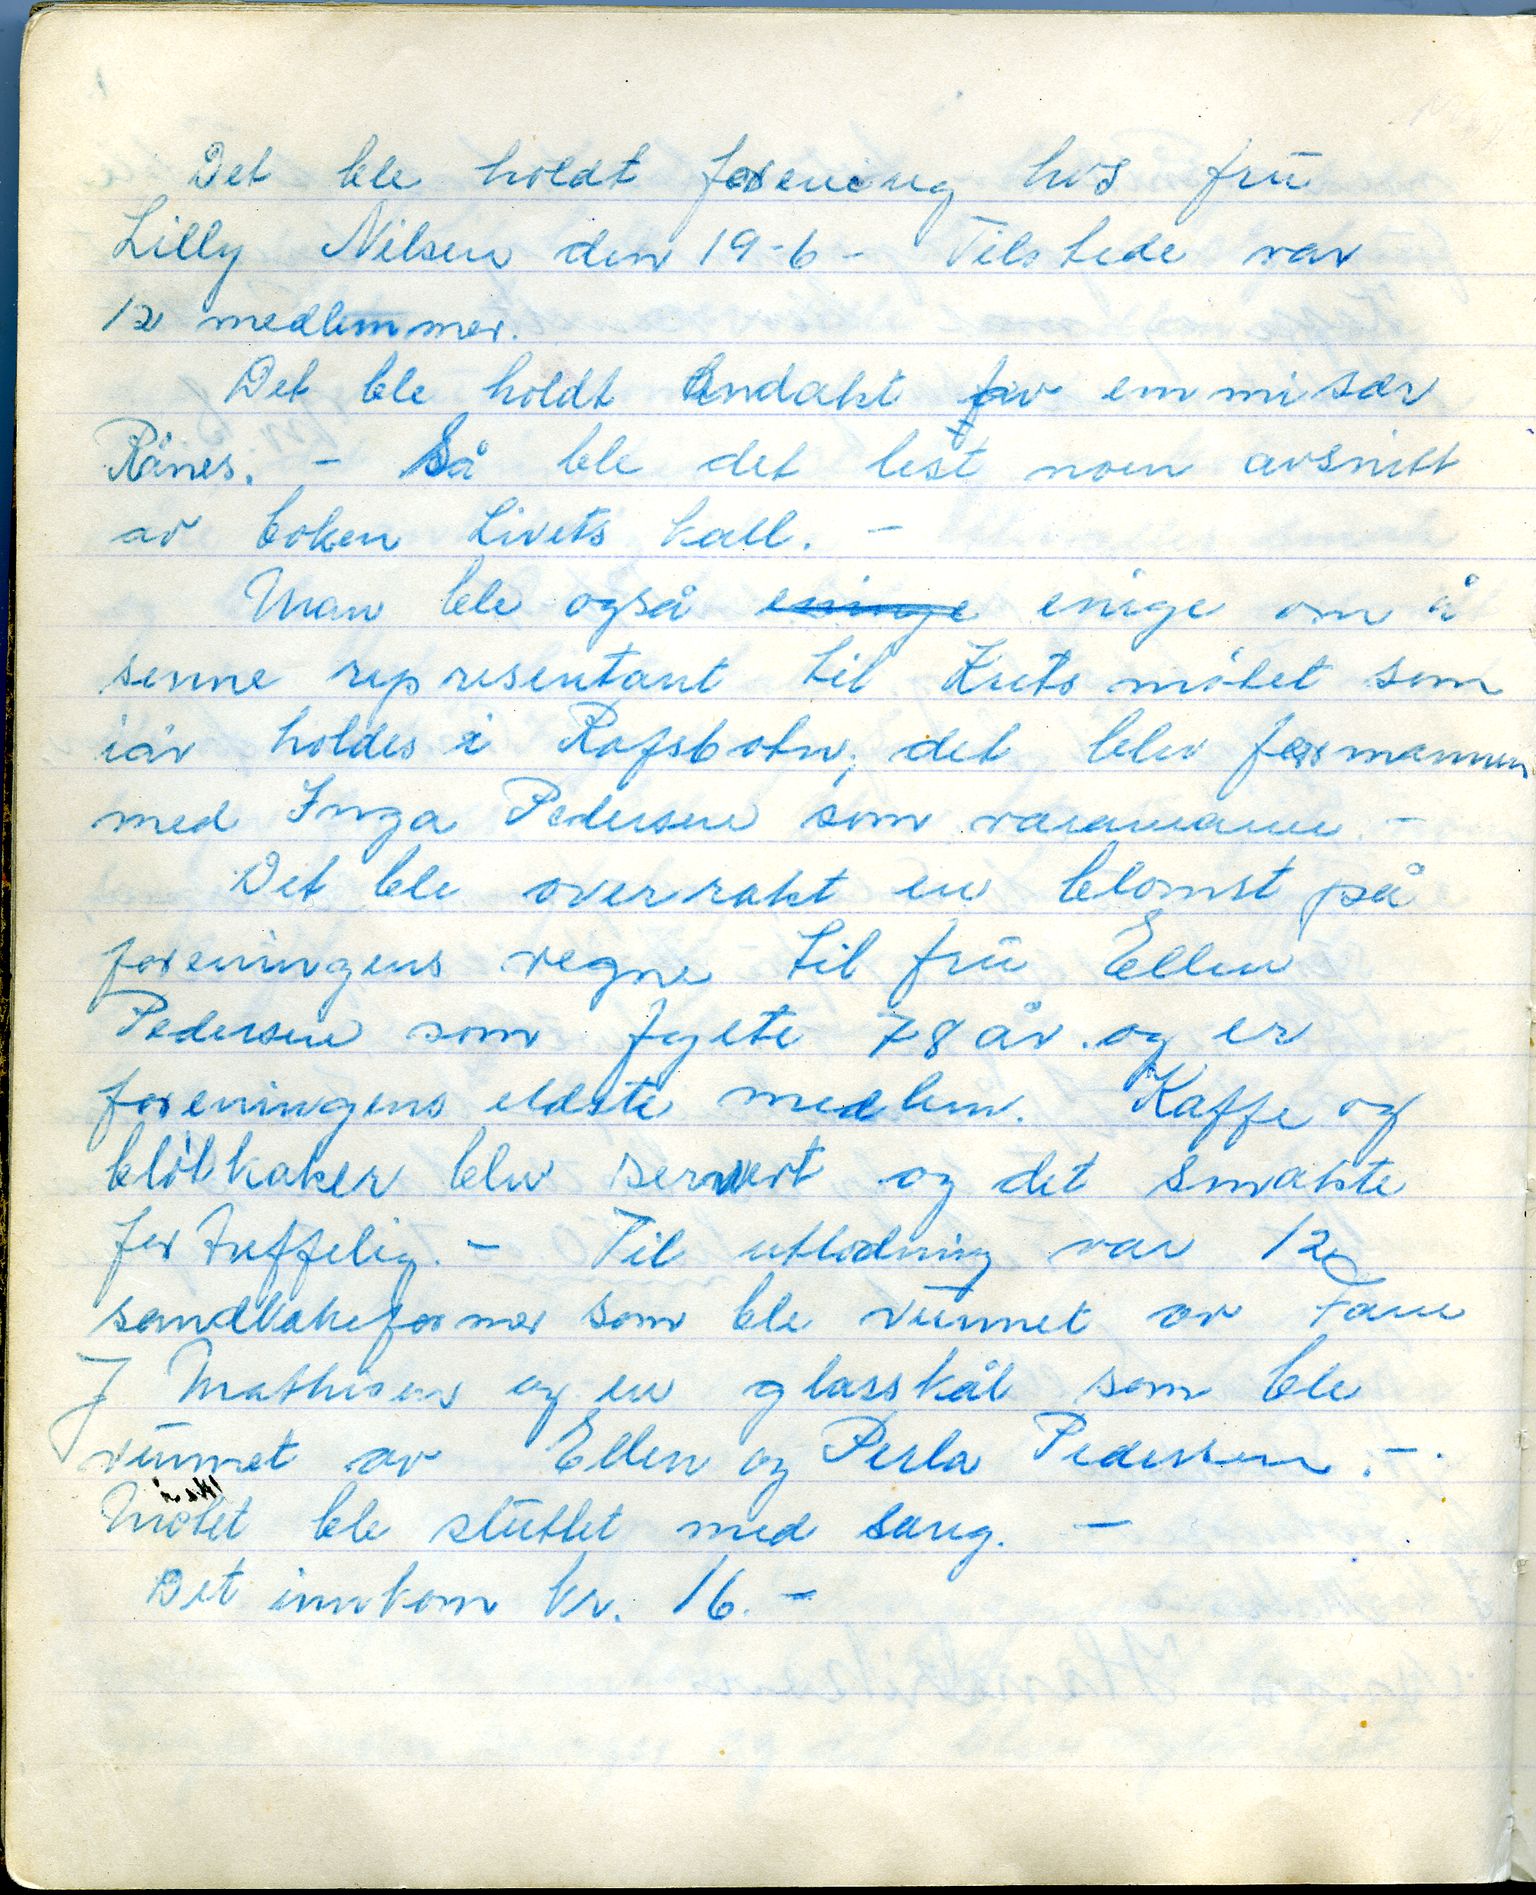 Det ble holdt forening hos frü
Lilly Nilsen den 19-6 - Tilstede var
12 medlemmer.
Det ble holdt andakt av emmisær
Rånes. - Så ble det lest noen avsnitt
av boken Livets kall. -
Man ble også eninge enige om å
senne representant til Kretsmøtet som
iår holdes i Rafsbotn, det blev formannen
med Inga Pedersen som varamann. -
Det ble overrakt en blomst på
foreningens regne til frü Ellen
Pedersen som fylte 78 år. og er
foreningens eldste medlem. Kaffe og
bløtkaker blev servert og det smakte
fortreffelig. - Til utlodning var 12
sandkakeformer som ble vunnet av
J Mathisen og en glasskål som ble
vunnet av Ellen og Perla Pedersen. -
Møtet ble sluttet med sang. -
Det innkom kr. 16. -